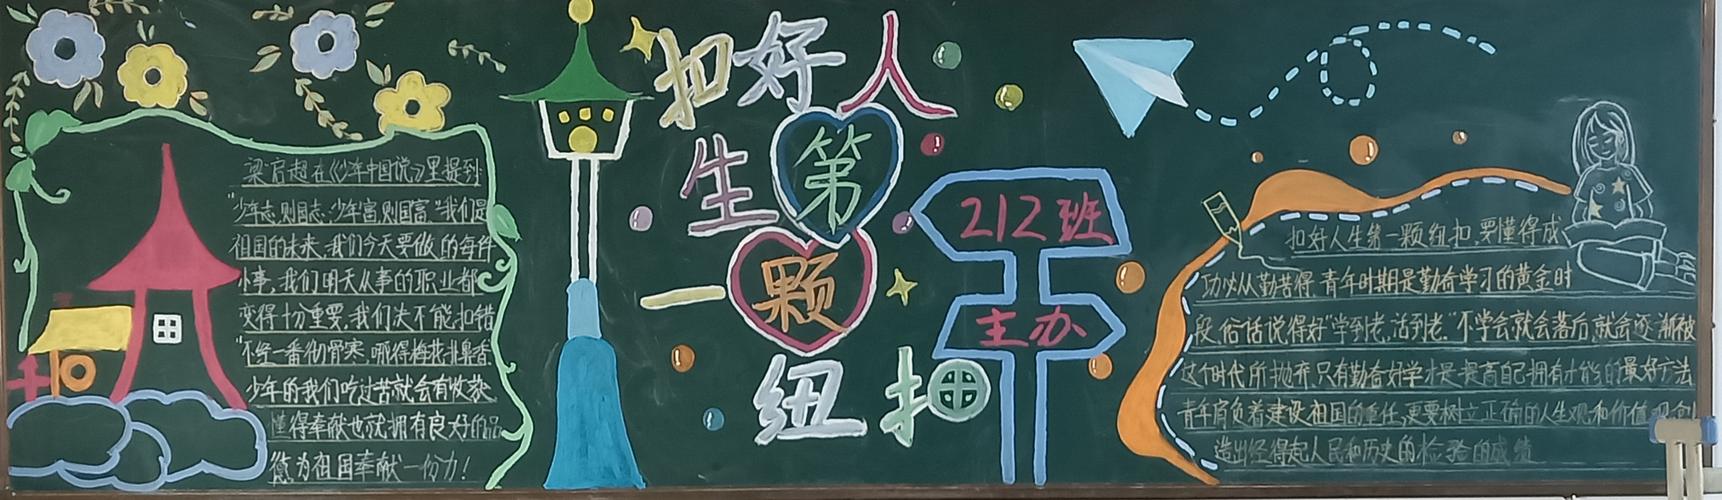 梁启超在《少年中国说》里提到
"少年志,则国志,少年富则国富."我们是
祖国的未来,我们今天要做的每件
小事,我们明天从事的职业都
变得十分重要,我们决不能扣错
"不经一番彻骨寒,哪得梅花扑鼻香
少年的我们吃过苦就会有收获
懂得奉献也就拥有良好的品
为祖国奉献一份力!
扣好人
生第
一颗
纽扣
212班
主办
扣好人生第一颗纽扣,要懂得成
功必从勤苦得 青年时期是勤奋学习的黄金时
段,俗话说得好"学到老,活到老."不学会就会落后,就会逐渐被
这个时代所抛弃.只有勤奋好学才是提高自己拥有才能的最好方法
青年肩负着建设祖国的重任,更要树立正确的人生观和价值观创
造出经得起人民和历史的检验的成绩